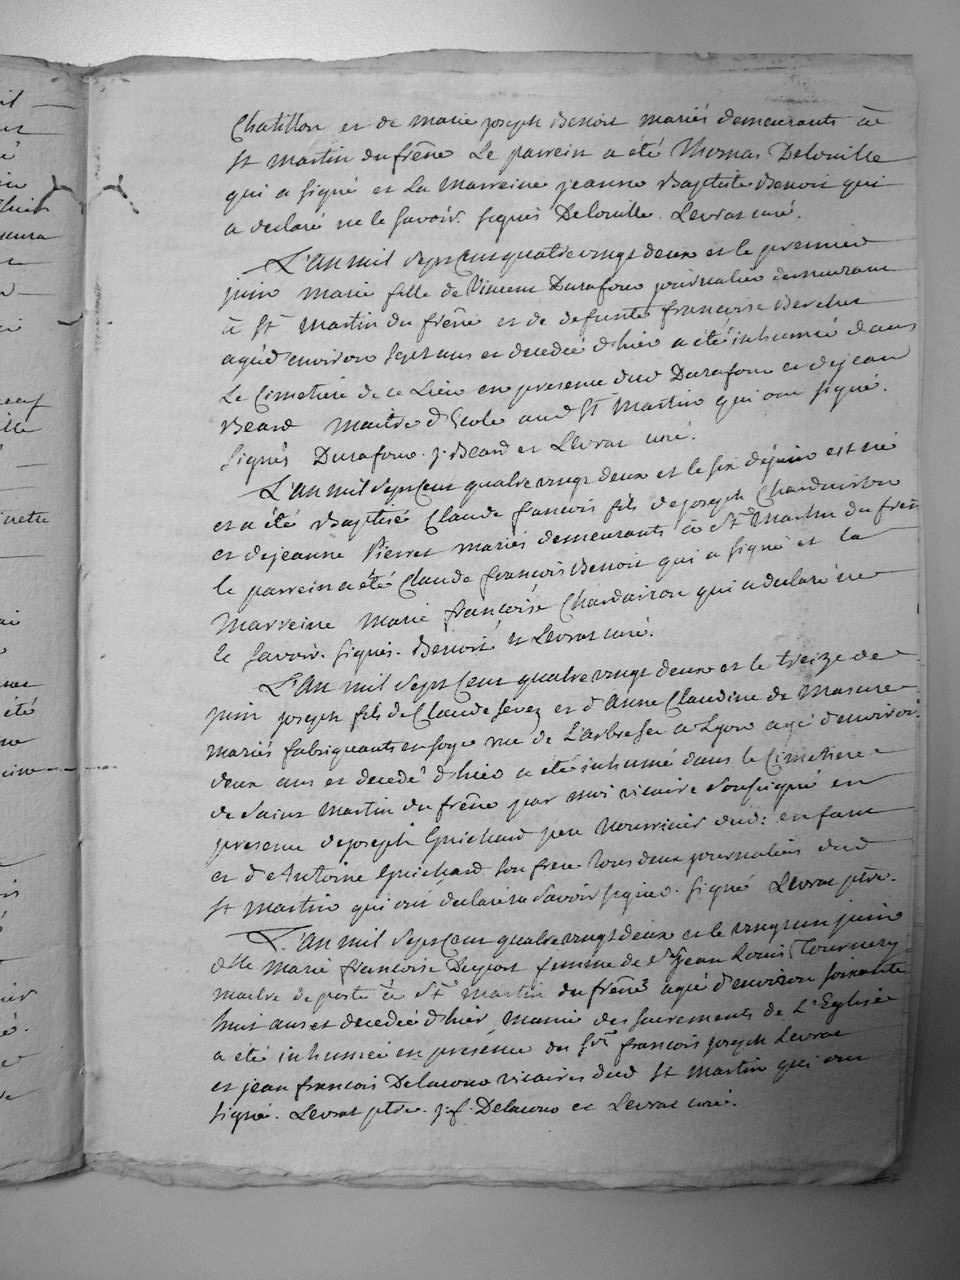 Chatillon et de marie joseph Benoit mariés demeurants à
St martin du frêne Le parrein a été Thomas Delouille
qui a signé et La Marreine jeanne Baptiste Benoit qui
a declaré ne le savoir. signés Delouille. Levrat curé.
L'An mil sept Cent quatre vingt deux et le premier
juin marie fille de Vincent Durafour journalier demeurant
à St martin du frêne et de defunte françoise Berchet
agée d'environ sept ans et decedée d'hier a été inhumée dans
Le Cimetiere de ce Lieu en presence dud Durafour et de jean
Beard Maitre d'Ecole aud St Martin qui ont signé.
signés Durafour. j. Beard et Levrat curé.
L'An mil sept Cent quatre vingt deux et le six de juin est né
et a été Baptisé Claude françois fils de joseph Chardairon
et de jeanne Pierret mariés demeurants à St Martin du frêne
le parrein a été Claude françois Benoit qui a signé et la
Marreine Marie françoise Chardairon qui a declaré ne
le savoir. signés. Benoit et Levrat curé.
L'An mil sept Cent quatre vingt deux et le treize de
juin joseph fils de Claude Sevez et d'Anne Claudine de Masure
mariés fabriquants en soye rue de L'arbre sec à Lyon agé d'environ
deux ans et decedé d'hier a été inhumé dans le Cimetiere
de Saint Martin du frêne par moi vicaire soussigné en
presence de joseph Guichard pere nourricier dud: enfant
et d'Antoine Guichard son frere tous deux journaliers dud
St Martin qui ont declaré ne savoir signer. signé Levrat ptre.
L'an mil sept Cent quatre vingt deux et le vingt un juin
dlle Marie francoise Duport femme de sr jean Louis Tournery
maitre de poste à St martin du frêne agée d'environ soixante
huit ans et decedée d'hier, munie des sacrements de L'Eglise
a été inhumée en presence des srs françois joseph Levrat
et jean francois Delacour vicaires dud St Martin qui ont
signé. Levrat ptre. j. f. Delacour et Levrat curé.